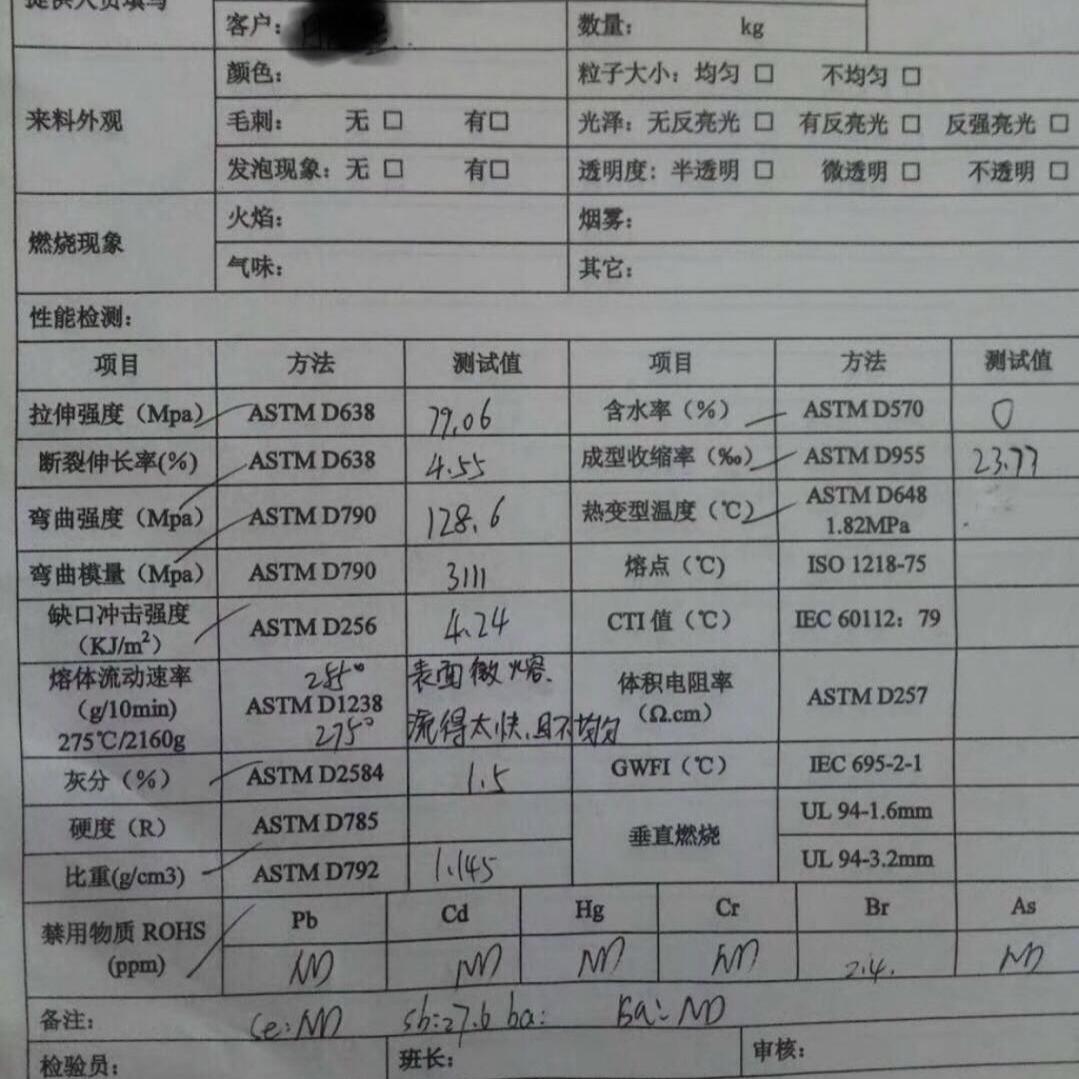 提供人员填写
客户： 数量： kg
来料外观
颜色： 粒子大小：均匀 □ 不均匀 □
毛刺： 无 □ 有□ 光泽：无反亮光 □ 有反亮光 □ 反强亮光 □
发泡现象：无 □ 有□ 透明度：半透明 □ 微透明 □ 不透明 □
燃烧现象
火焰： 烟雾：
气味： 其它：
性能检测：
项目 方法 测试值 项目 方法 测试值
拉伸强度（Mpa） ASTM D638 79.06 含水率（%） ASTM D570 0
断裂伸长率(%) ASTM D638 4.55 成型收缩率（‰） ASTM D955 23.77
弯曲强度（Mpa） ASTM D790 128.6 热变型温度（℃） ASTM D648
1.82MPa
弯曲模量（Mpa） ASTM D790 3111 熔点（℃) ISO 1218-75
缺口冲击强度
（KJ/m²） ASTM D256 4.24 CTI 值（℃） IEC 60112：79
熔体流动速率
（g/10min)
275℃/2160g
285°
ASTM D1238
275°
表面微熔.
流得太快,且不均匀
体积电阻率
（Ω.cm） ASTM D257
灰分（%） ASTM D2584 1.5 GWFI（℃） IEC 695-2-1
硬度（R） ASTM D785 垂直燃烧 UL 94-1.6mm
比重(g/cm3) ASTM D792 1.145 UL 94-3.2mm
禁用物质 ROHS
(ppm)
Pb Cd Hg Cr Br As
ND ND ND ND 2.4. ND
备注： Se:ND Sb:27.6 ba: Ba:ND
检验员： 班长： 审核：